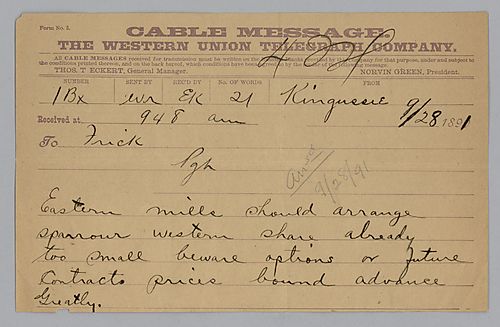 Form No. 2.
CABLE MESSAGE.
THE WESTERN UNION TELEGRAPH COMPANY.
All CABLE MESSAGES received for transmission must be written on the
provided by this Company for that purpose, under and subject to
the conditions printed thereon, and on the back hereof, which conditions have been
to by the
of the following message.
THOS. T. ECKERT, General Manager.
NORVIN GREEN, President.
NUMBER SENT BY REC'D BY NO. OF WORDS FROM
1Bx Wr EK 21 Kingussie
9/28 1891
Received at 948 am
To Frick
Pgh
Answd
9/28/91
Eastern mills should arrange
sparrour western share already
too small beware options or future
contracts prices bound advance
Greatly.